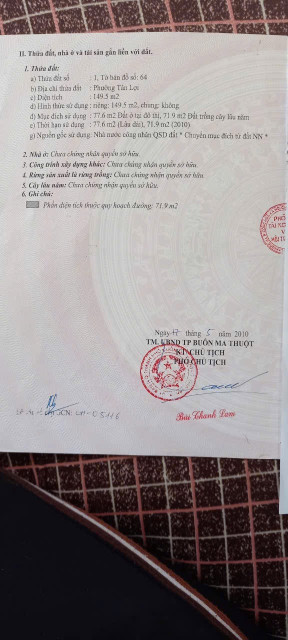 II. Thửa đất, nhà ở và tài sản gắn liền với đất.
1. Thửa đất:
a) Thửa đất số : 1, Tờ bản đồ số: 64
b) Địa chỉ thửa đất : Phường Tân Lợi
c) Diện tích : 149.5 m2
d) Hình thức sử dụng : riêng: 149.5 m2, chung: không
đ) Mục đích sử dụng : 77.6 m2 Đất ở tại đô thị, 71.9 m2 Đất trồng cây lâu năm
e) Thời hạn sử dụng : 77.6 m2 (Lâu dài), 71.9 m2 (2010)
g) Nguồn gốc sử dụng: Nhà nước công nhận QSD đất * Chuyển mục đích từ đất NN *
2. Nhà ở: Chưa chứng nhận quyền sở hữu.
3. Công trình xây dựng khác: Chưa chứng nhận quyền sở hữu.
4. Rừng sản xuất là rừng trồng: Chưa chứng nhận quyền sở hữu.
5. Cây lâu năm: Chưa chứng nhận quyền sở hữu.
6. Ghi chú:
Phần diện tích thuộc quy hoạch đường: 71.9 m2
Ngày 17 tháng 5 năm 2010
TM. UBND TP BUÔN MA THUỘT
KT. CHỦ TỊCH
PHÓ CHỦ TỊCH
Bùi Thanh Lam